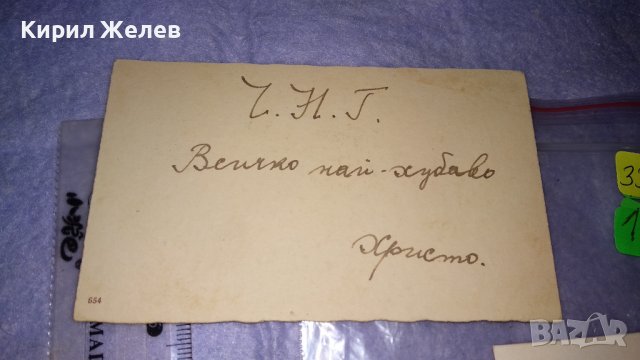 Кирил Желев
Ч.Н.Г.
Всичко най-хубаво
Христо.
654
BAZAR